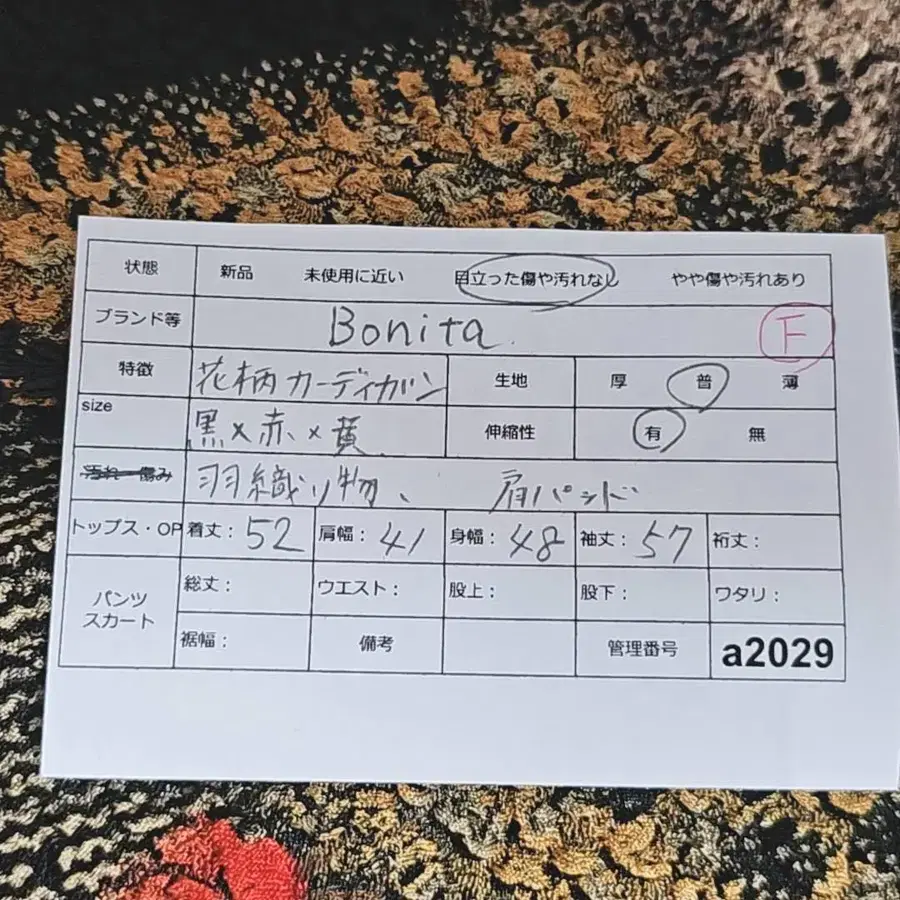 状態 新品 未使用に近い 目立った傷や汚れなし やや傷や汚れあり
ブランド等 Bonita F
特徴 花柄カーディガン 生地 厚 普 薄
size 黒×赤×黄 伸縮性 有 無
汚れ 傷み 羽織り物、 肩パッド
トップス・OP 着丈: 52 肩幅: 41 身幅: 48 袖丈: 57 裄丈:
パンツ スカート 総丈: ウエスト: 股上: 股下: ワタリ:
裾幅: 備考 管理番号 a2029